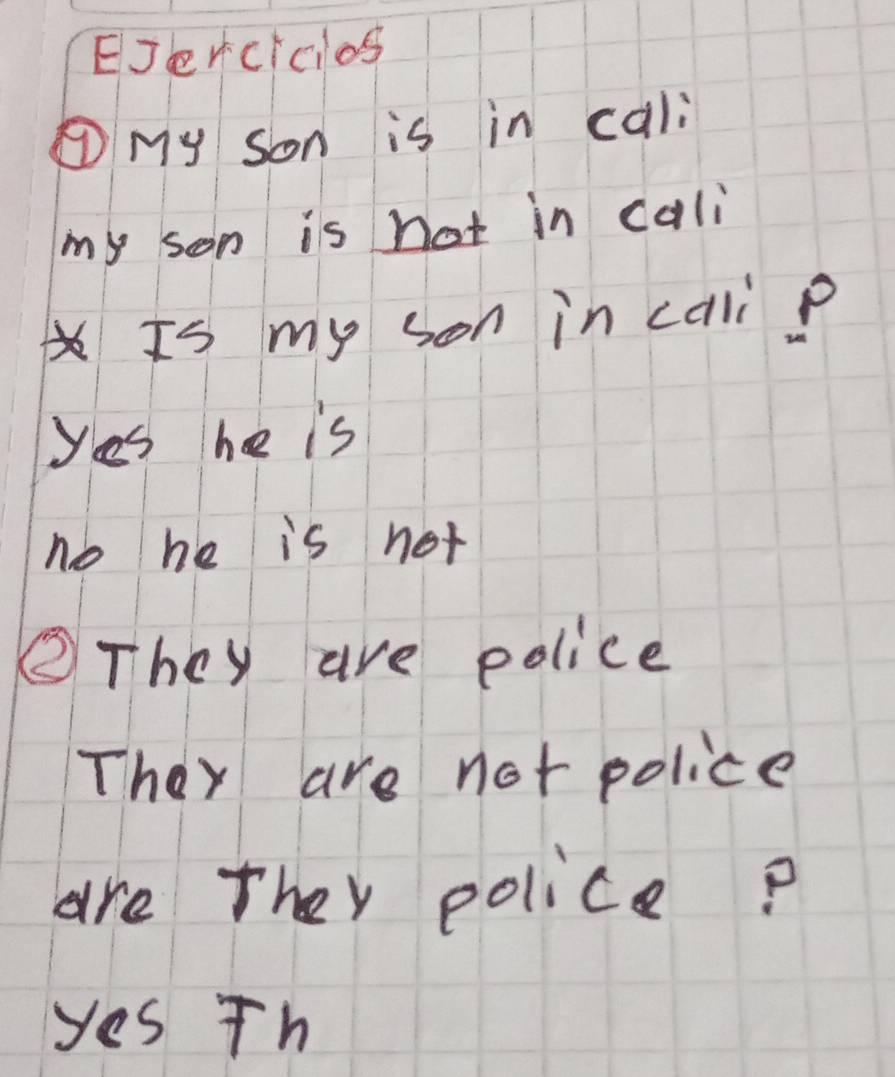 EJercicios
① My son is in cali
my son is not in cali
* Is my son in cali ?
yes he is
no he is not
② They are police
They are not police
are They police ?
yes Th